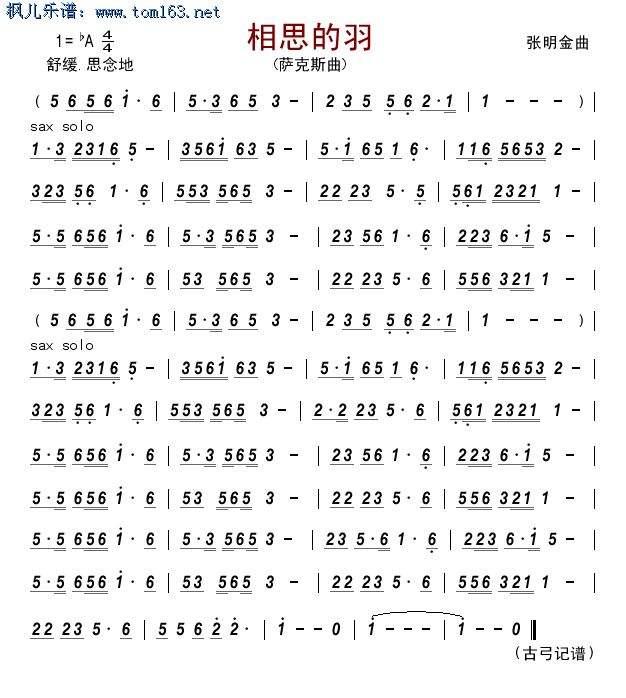 枫儿乐谱：www.tom163.net
相思的羽
1= ♭A 4/4
张明金曲
舒缓.思念地
(萨克斯曲)
( 5 6 5 6 i̇ · 6 | 5 · 3 6 5 3 － | 2 3 5 5̣ 6̣ 2 · 1 | 1 － － － ) |
sax solo
1 · 3 2 3 1 6̣ 5̣ － | 3 5 6 1̇ 6 3 5 － | 5 · 1̇ 6 5 1 6̣ · | 1 1 6̣ 5 6 5 3 2 － |
3 2 3 5̣ 6̣ 1 · 6̣ | 5 5 3 5 6 5 3 － | 2 2 2 3 5 · 5̣ | 5̣ 6̣ 1 2 3 2 1 1 － |
5 · 5 6 5 6 1̇ · 6 | 5 · 3 5 6 5 3 － | 2 3 5 6 1 · 6̣ | 2 2 3 6 · 1̇ 5 － |
5 · 5 6 5 6 1̇ · 6 | 5 3 5 6 5 3 － | 2 2 2 3 5 · 6 | 5 5 6 3 2 1 1 － |
( 5 6 5 6 1̇ · 6 | 5 · 3 6 5 3 － | 2 3 5 5̣ 6̣ 2 · 1 | 1 － － － ) |
sax solo
1 · 3 2 3 1 6̣ 5̣ － | 3 5 6 1̇ 6 3 5 － | 5 · 1̇ 6 5 1 6̣ · | 1 1 6̣ 5 6 5 3 2 － |
3 2 3 5̣ 6̣ 1 · 6̣ | 5 5 3 5 6 5 3 － | 2 · 2 2 3 5 · 6 | 5̣ 6̣ 1 2 3 2 1 1 － |
5 · 5 6 5 6 1̇ · 6 | 5 · 3 5 6 5 3 － | 2 3 5 6 1 · 6̣ | 2 2 3 6 · 1̇ 5 － |
5 · 5 6 5 6 1̇ · 6 | 5 3 5 6 5 3 － | 2 2 2 3 5 · 6 | 5 5 6 3 2 1 1 － |
5 · 5 6 5 6 1̇ · 6 | 5 · 3 5 6 5 3 － | 2 3 5 · 6 1 · 6̣ | 2 2 3 6 · 1̇ 5 － |
5 · 5 6 5 6 1̇ · 6 | 5 3 5 6 5 3 － | 2 2 2 3 5 · 6 | 5 5 6 3 2 1 1 － |
2 2 2 3 5 · 6 | 5 5 6 2̇ 2̇ · | 1̇ － － 0 | 1̇ － － － | 1̇ － － 0 ‖
(古弓记谱)